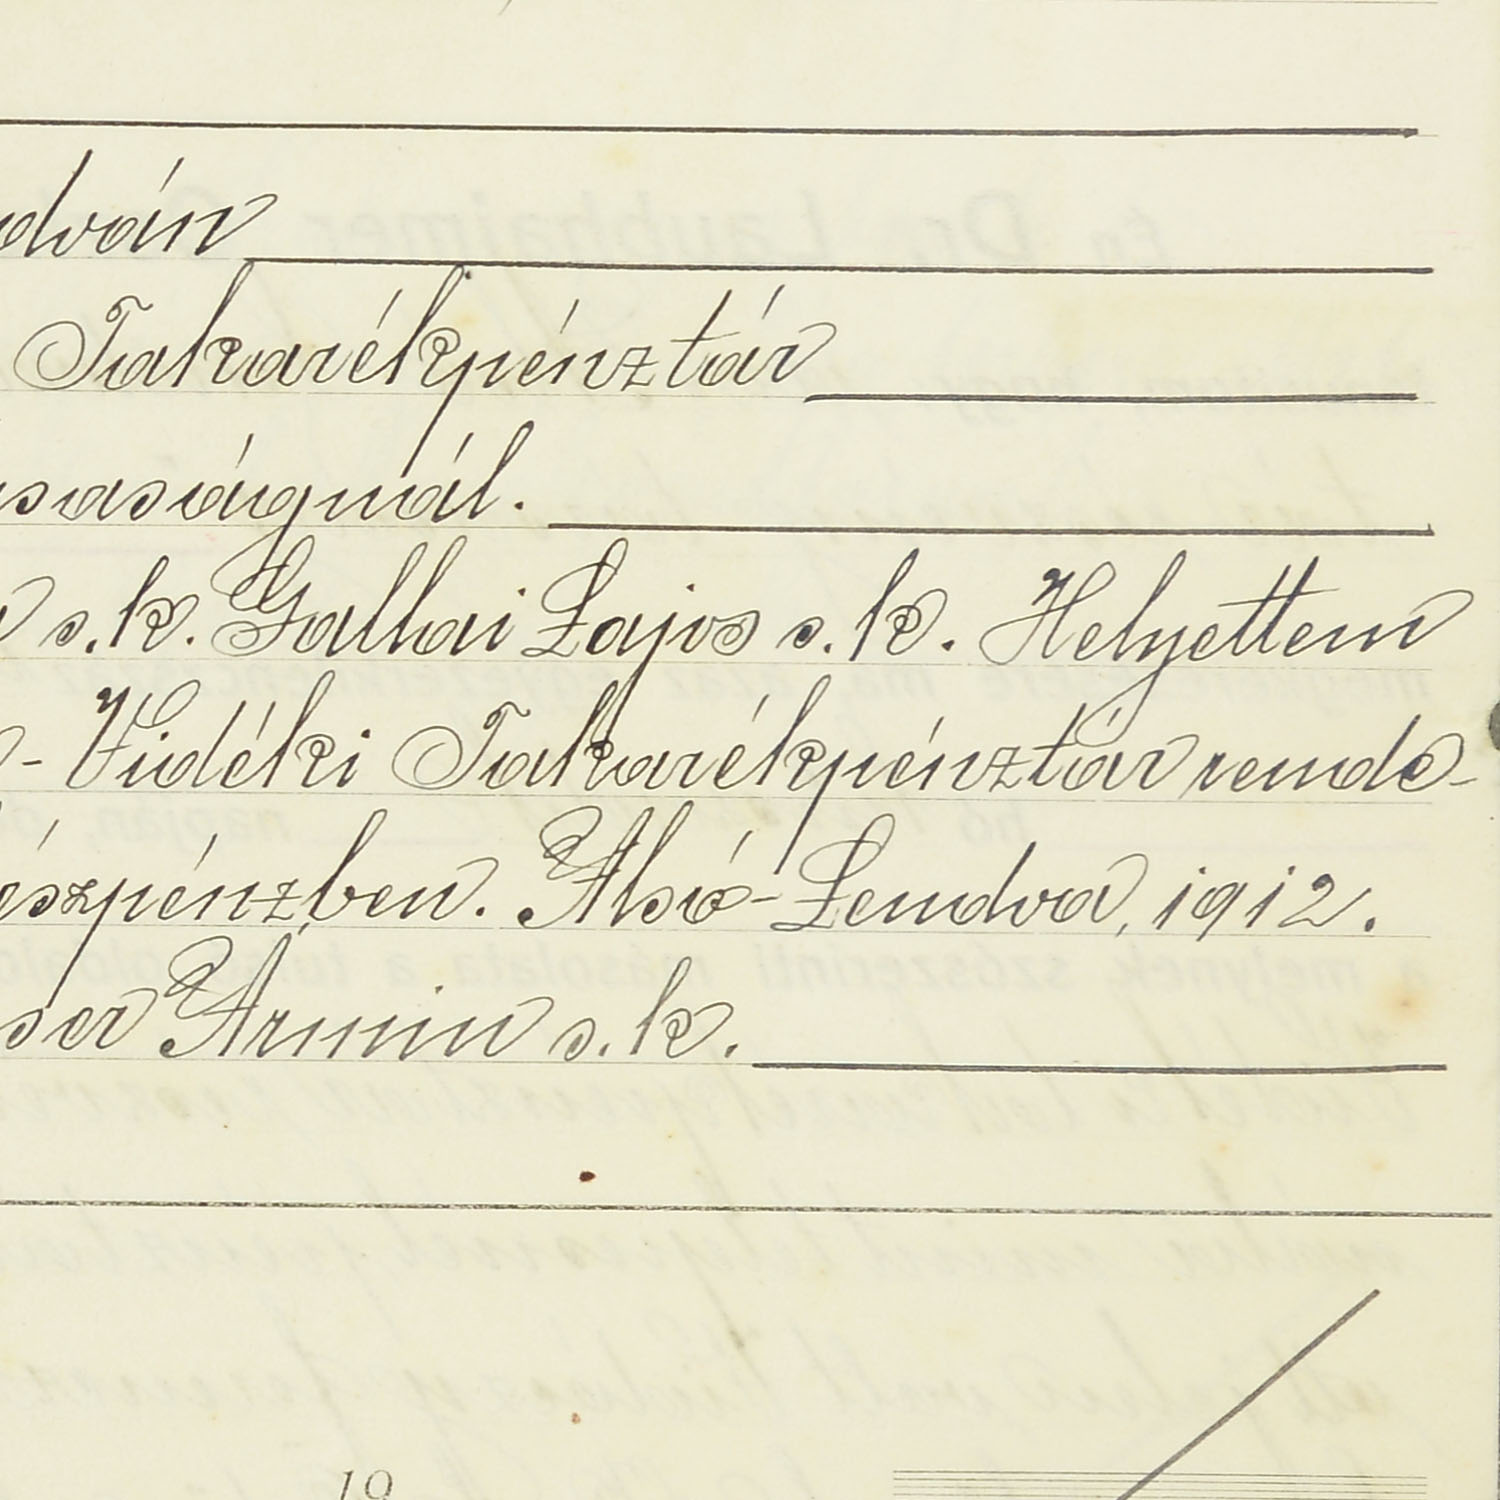 Takarékpénztár
s.k. Gallai Lajos s.k. Helyettem
- Vidéki Takarékpénztár rende-
észpénzben. Alsó-Lendva, 1912.
Ármin s.k.
19